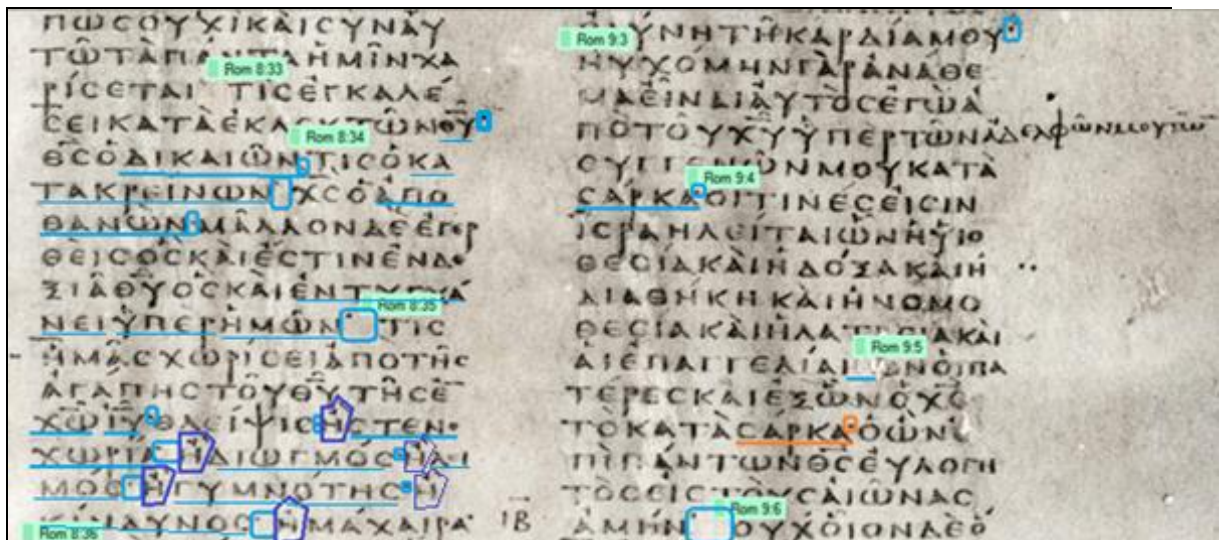 ΠΩCΟΥΧΙΚΑΙCΥΝΑΥ
ΤΩΤΑΠΑΝΤΑΗΜΙΝΧΑ
Rom 8:33
ΡΙCΕΤΑΙ ΤΙCΕΓΚΑΛΕ
CΕΙΚΑΤΑΕΚΛΕΚΤΩΝΘΥ
Rom 8:34
ΘCΟΔΙΚΑΙΩΝΤΙCΟΚΑ
ΤΑΚΡΕΙΝΩΝ ΧCΟΑΠΟ
ΘΑΝΩΝΜΑΛΛΟΝΔΕΕΓΕΡ
ΘΕΙCΟCΚΑΙΕCΤΙΝΕΝΔΕ
ΞΙΑΘΥΟCΚΑΙΕΝΤΥΓΧΑ
Rom 8:35
ΝΕΙΥΠΕΡΗΜΩΝ ΤΙC
ΗΜΑCΧΩΡΙCΕΙΑΠΟΤΗC
ΑΓΑΠΗCΤΟΥΘΥΤΗCΕ
ΧΩΙΥΘΛΕΙΨΙCΗCΤΕΝΟ
ΧΩΡΙΑ ΗΔΙΩΓΜΟCΗΛΙ
ΜΟC ΗΓΥΜΝΟΤΗCΗ
ΚΙΝΔΥΝΟC ΗΜΑΧΑΙΡΑ
Rom 8:36
Rom 9:3
ΥΝΗΤΗΚΑΡΔΙΑΜΟΥ
ΗΥΧΟΜΗΝΓΑΡΑΝΑΘΕ
ΜΑΕΙΝΑΙΑΥΤΟCΕΓΩΑ
ΠΟΤΟΥΧΥΥΠΕΡΤΩΝΑΔΕΛΦΩΝΜΟΥΤΩΝ
CΥΓΓΕΝΩΝΜΟΥΚΑΤΑ
Rom 9:4
CΑΡΚΑΟΙΤΙΝΕCΕΙCΙΝ
ΙCΡΑΗΛΕΙΤΑΙΩΝΗΥΙΟ
ΘΕCΙΑΚΑΙΗΔΟΞΑΚΑΙΗ
ΔΙΑΘΗΚΗΚΑΙΗΝΟΜΟ
ΘΕCΙΑΚΑΙΗΛΑΤΡΕΙΑΚΑΙ
Rom 9:5
ΑΙΕΠΑΓΓΕΛΙΑΙΩΝΟΙΠΑ
ΤΕΡΕCΚΑΙΕΞΩΝΟΧC
ΤΟΚΑΤΑCΑΡΚΑΟΩΝΕ
ΠΙΠΑΝΤΩΝΘCΕΥΛΟΓΗ
ΤΟCΕΙCΤΟΥCΑΙΩΝΑC
Rom 9:6
ΙΒ ΑΜΗΝ ΟΥΧΟΙΟΝΔΕΟ